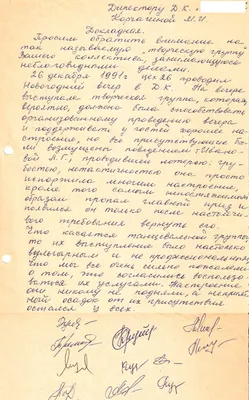 Директору Д.К.
Корчагиной М.И.
Докладная.
Просим обратить внимание на
так называемую, творческую группу
Вашего коллектива, занимающуюся
неблаговидными делами.
26 декабря 1991г. цех 26 проводил
Новогодний вечер в Д.К. На вечере
выступала творческая группа, которая,
вероятно, должна была способствовать
организованному проведению вечера
и поддержать у гостей хорошее на-
строение, но все присутствующие бы-
ли возмущены поведением
вой Л.Г.) проводившей лотерею: гру-
бостью, нетактичностью она просто
испортила многим настроение,
кроме того самым непостижимым
образом пропал главный приз и
появился он только после настойчи-
вого требования вернуть его.
Что касается танцевальной группы,
то их выступление было настолько
вульгарным и не профессиональным,
что мы все очень сильно пожалели
о том, что согласились воспользо-
ваться их услугами. Настроение
они никому не подняли, а неприят-
ный осадок от их присутствия
остался у всех.